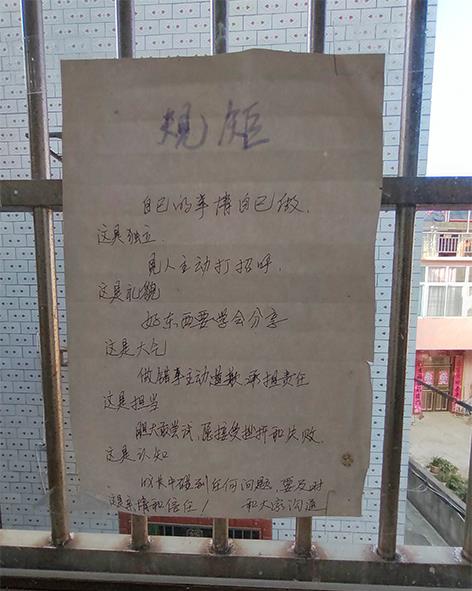 规矩
自己的事情自己做.
这是独立.
见人主动打招呼.
这是礼貌
好东西要学会分享
这是大气
做错事主动道歉承担责任
这是担当
胆大敢尝试,愿接受挫折和失败
这是认知
成长中碰到任何问题,要及时
和大家沟通
这是亲情和信任!